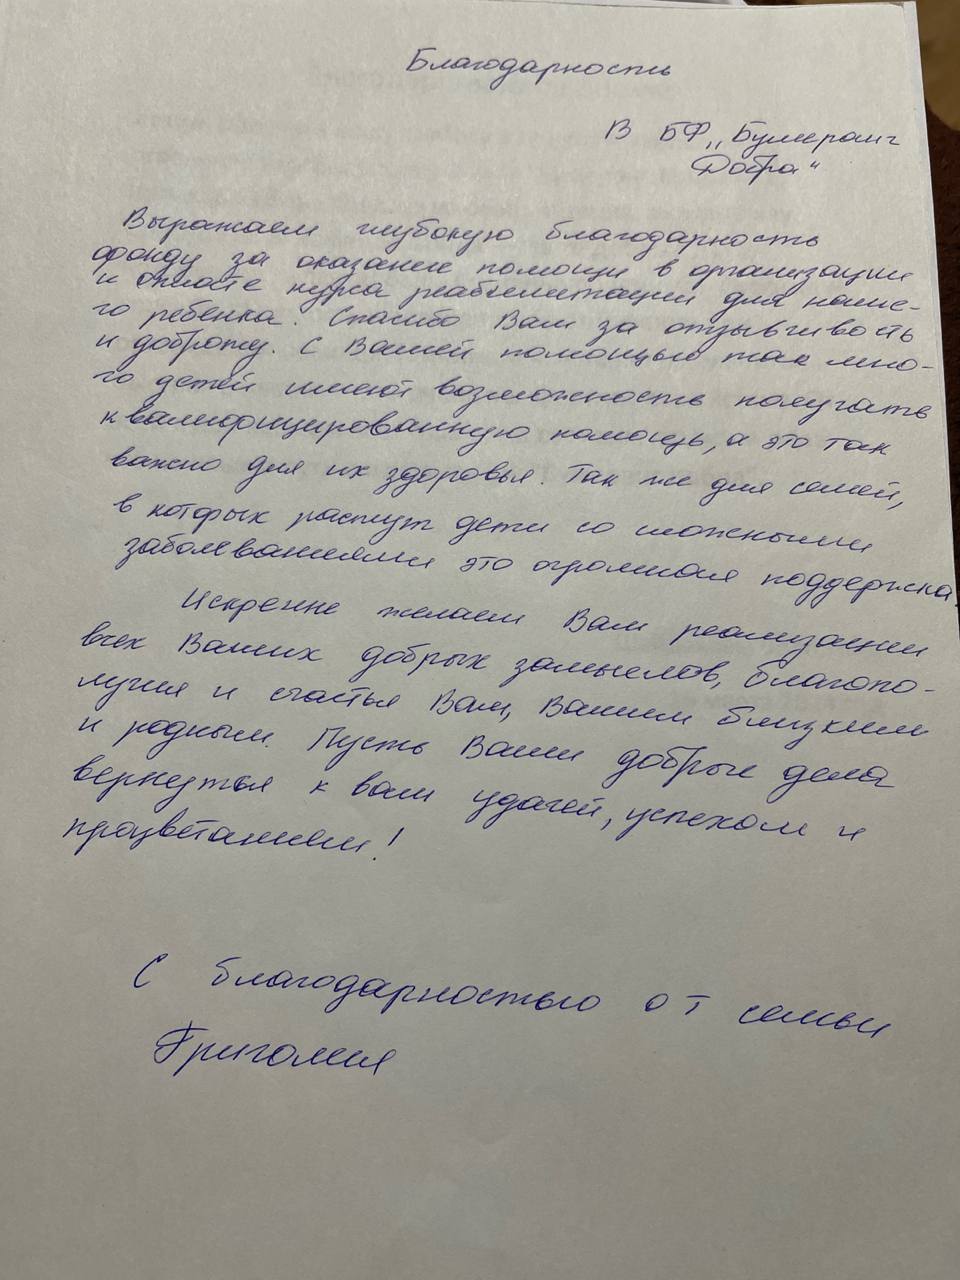 Благодарность
В БФ „Бумеранг
Добра"
Выражаем глубокую благодарность
фонду за оказание помощи в организации
и оплате курса реабилитации для наше-
го ребенка. Спасибо Вам за отзывчивость
и доброту. С Вашей помощью так мно-
го детей имеют возможность получать
квалифицированную помощь, а это так
важно для их здоровья. Так же для семей,
в которых растут дети со сложными
заболеваниями это огромная поддержка.
Искренне желаем Вам реализации
всех Ваших добрых замыслов, благопо-
лучия и счастья Вам, Вашим близким
и родным. Пусть Ваши добрые дела
вернуться к вам удачей, успехом и
процветанием!
С благодарностью от семьи
Григолия